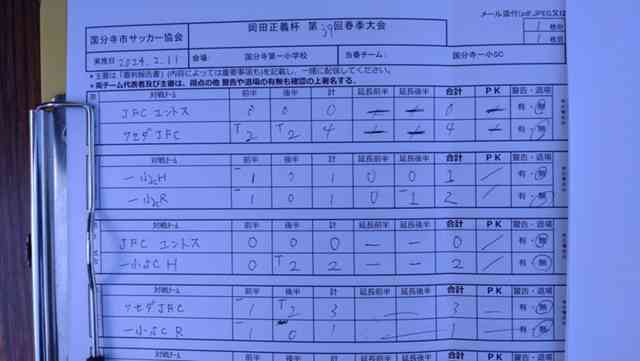 メール添付(pdf,JPEG又は
岡田正義杯 第39回春季大会
国分寺市サッカー協会
1枚目
1枚目
実施日 2024.2.11 会場 国分寺第一小学校 当番チーム: 国分寺一小SC
*主審は「審判報告書」(内容によっては重要事項も)を記載し、一緒に配信してください。
*両チーム代表者及び主審は、得点の他 警告や退場の有無も確認の上署名する。
対戦チーム 前半 後半 計 延長前半 延長後半 合計 PK 警告・退場
JFC ユントス 0 0 0 ー ー 0 ー 有・無
ワセダJFC 2 2 4 ー ー 4 ー 有・無
対戦チーム 前半 後半 計 延長前半 延長後半 合計 PK 警告・退場
一小SC H 1 0 1 0 0 1 / 有・無
一小SC R 1 0 1 0 1 2 / 有・無
対戦チーム 前半 後半 計 延長前半 延長後半 合計 PK 警告・退場
JFC ユントス 0 0 0 ー ー 0 / 有・無
一小SC H 0 2 2 ー ー 2 / 有・無
対戦チーム 前半 後半 計 延長前半 延長後半 合計 PK 警告・退場
ワセダJFC 1 2 3 3 有・無
一小SC R 1 0 1 1 有・無
対戦チーム 前半 後半 計 延長前半 延長後半 合計 PK 警告・退場